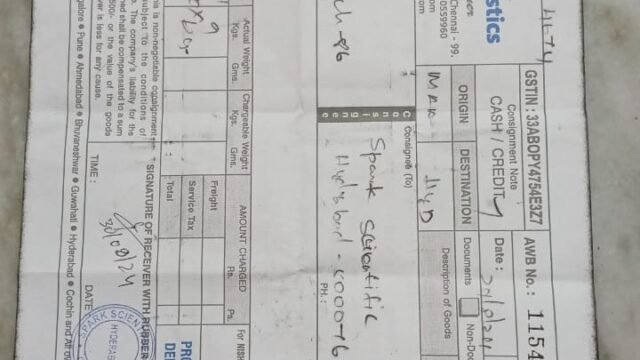 GSTIN : 33ABOPY4754E3Z7
AWB No. : 1154
stics
Chennai - 99.
0559960
om
Consignment Note
CASH / CREDIT
Date :
ORIGIN
DESTINATION
Documents
Non-Doc
HYD
Description of Goods
Consignee
Consignee (To)
Spark Scientific
Hyderabad -
PH.:
ch-86
Actual Weight
Kgs.
Gms.
Chargeable Weight
Kgs.
Gms.
AMOUNT CHARGED
Rs.
Ps.
Freight
Service Tax
Total
For NISH
PRO
DE
is is non-negotiable consignment
subject To the conditions of
. The company's liability for the
ned shall be compensated to a sum
500/- or the value of the goods
ver is less for any cause.
SIGNATURE OF RECEIVER WITH RUBBER
TIME :
DATE
30/08/24
PARK SCIEN
HYDERABAD
galore ● Pune ● Ahmedabad ● Bhuvaneshwar ● Guwahati ● Hyderabad ● Cochin and All ov